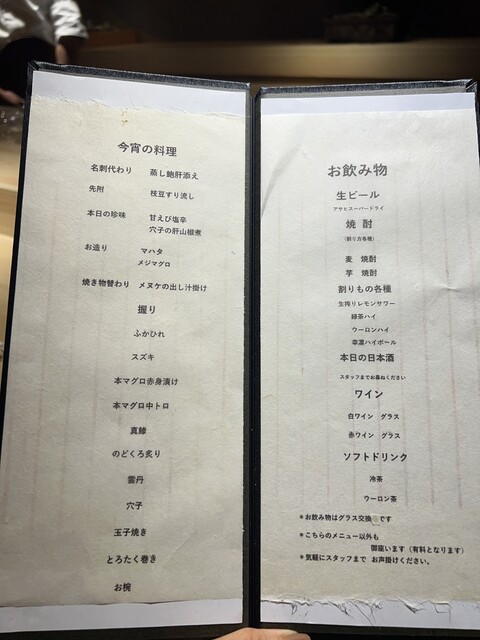 今宵の料理
名刺代わり 蒸し鮑肝添え
先附 枝豆すり流し
本日の珍味 甘えび塩辛
穴子の肝山椒煮
お造り マハタ
メジマグロ
焼き物替わり メヌケの出し汁掛け
握り
ふかひれ
スズキ
本マグロ赤身漬け
本マグロ中トロ
真鯵
のどくろ炙り
雲丹
穴子
玉子焼き
とろたく巻き
お椀
お飲み物
生ビール
アサヒスーパードライ
焼酎
(割り方各種)
麦 焼酎
芋 焼酎
割りもの各種
生搾りレモンサワー
緑茶ハイ
ウーロンハイ
ハイボール
本日の日本酒
スタッフまでお尋ねください
ワイン
白ワイン グラス
赤ワイン グラス
ソフトドリンク
冷茶
ウーロン茶
*お飲み物はグラス交換 です
*こちらのメニュー以外も
御座います(有料となります)
*気軽にスタッフまで お声掛けください。